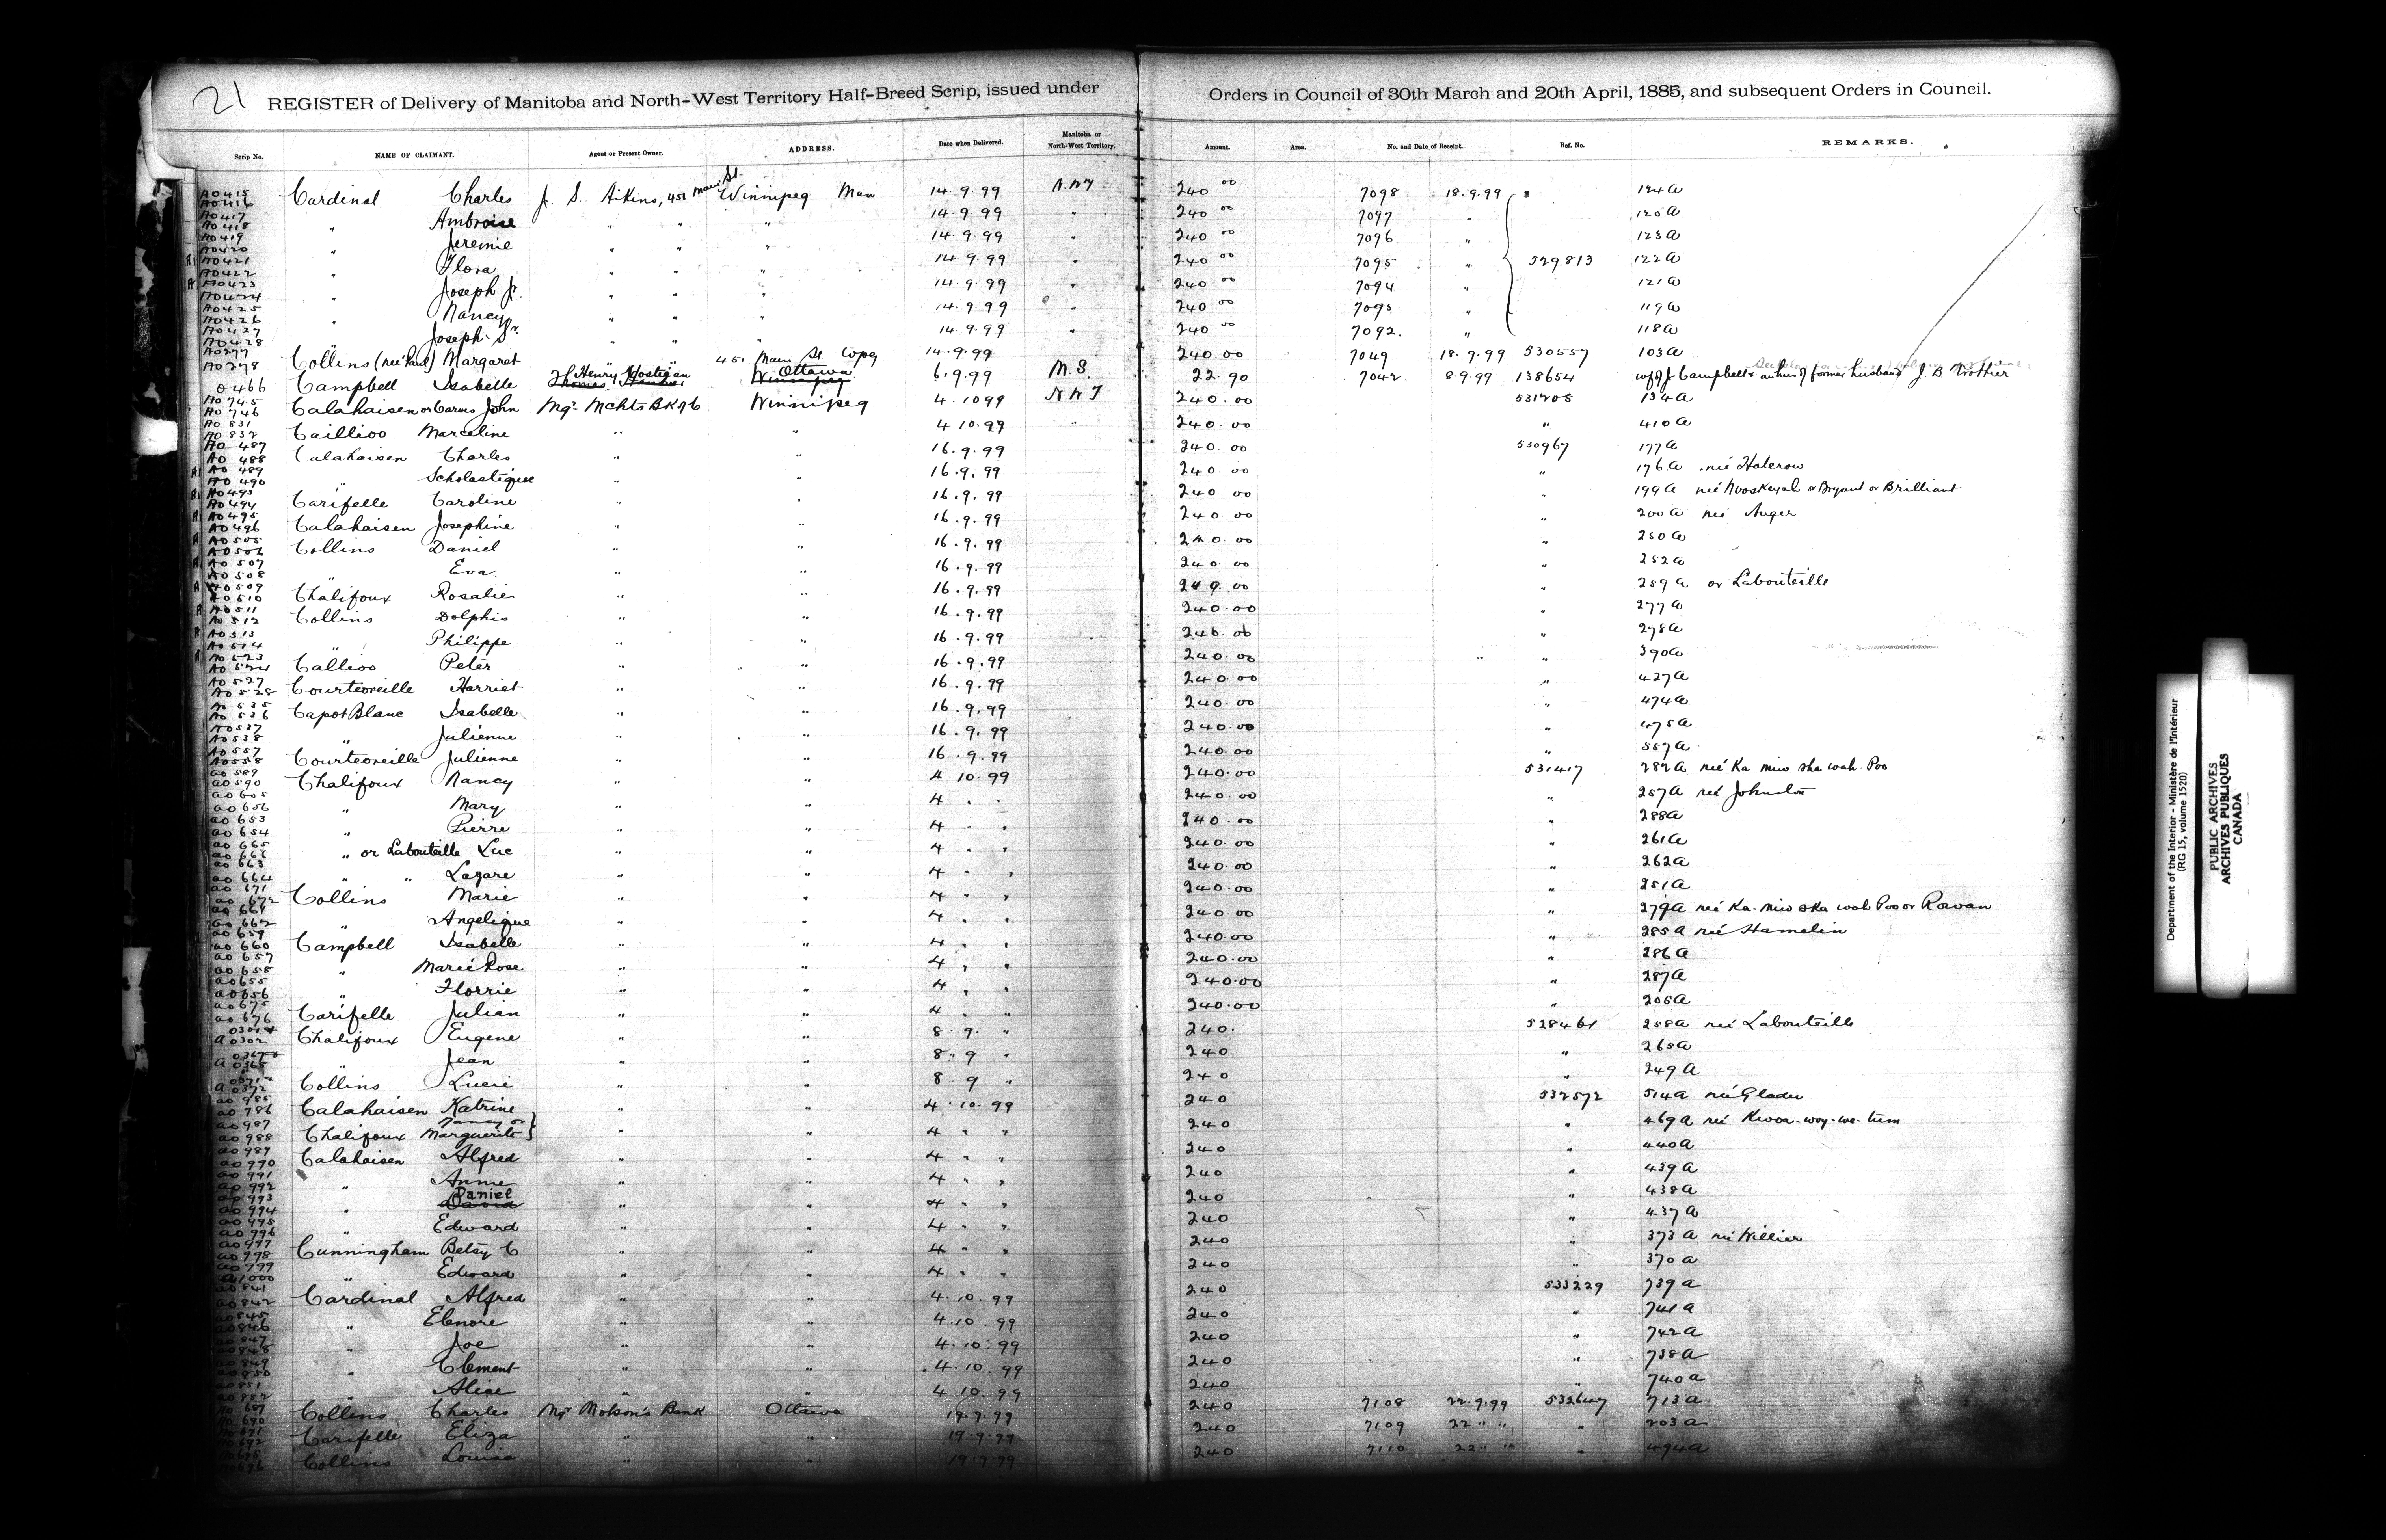 21
REGISTER of Delivery of Manitoba and North-West Territory Half-Breed Scrip, issued under Orders in Council of 30th March and 20th April, 1885, and subsequent Orders in Council.
Scrip No. NAME OF CLAIMANT. Agent or Present Owner. ADDRESS. Date when Delivered. Manitoba or North-West Territory. Amount. Area. No. and Date of Receipt. Ref. No. REMARKS.
A0415 A0416 Cardinal Charles J. S. Aikins, 451 Main St. Winnipeg Man 14.9.99 N.W.T 240 00 7098 18.9.99 124a
A0417 A0418 " Ambroise " " " 14.9.99 " 240 00 7097 " 120a
A0419 A0420 " Jeremie " " " 14.9.99 " 240 00 7096 " 123a
A0421 A0422 " Flora " " " 14.9.99 " 240 00 7095 " 529813 122a
A0423 A0424 " Joseph Jr. " " " 14.9.99 " 240 00 7094 " 121a
A0425 A0426 " Nancy " " " 14.9.99 " 240 00 7093 " 119a
A0427 A0428 " Joseph Sr. " " " 14.9.99 " 240 00 7092. " 118a
A0277 A0278 Collins (neé Pard) Margaret " " 451 Main St Wpeg 14.9.99 240.00 7049 18.9.99 530557 103a
0466 Campbell Isabelle Henry Hostigan Ottawa Winnipeg 6.9.99 M.S. 22.90 7042. 8.9.99 138654 wf of J Campbell & an heir of former husband J. B. Trottier
A0745 A0746 Calahaisen or Carns John Mgr Mchts Bk of C Winnipeg 4.1099 N W T 240.00 531205 134a
A0831 A0832 Caillioo Marceline " " 4 10.99 " 240.00 " 410a
A0487 A0488 Calahaisen Charles " " 16.9.99 240.00 530967 177a
A0489 A0490 " Scholastique " " 16.9.99 240 00 " 176a neé Halcrow
A0493 A0494 Carifelle Caroline " " 16.9.99 240 00 " 199a neé Mooskeyah or Bryant or Brilliant
A0495 A0496 Calahaisen Josephine " " 16.9.99 240.00 " 200a neé Auger
A0505 A0506 Collins Daniel " " 16.9.99 240.00 " 250a
A0507 A0508 " Eva " " 16.9.99 240.00 " 252a
A0509 A0510 Chalifoux Rosalie " " 16.9.99 240.00 " 259a or Labouteille
A0511 A0512 Collins Dolphis " " 16.9.99 240.00 " 277a
A0513 A0514 " Philippe " " 16.9.99 240.00 " 278a
A0523 A0524 Callioo Peter " " 16.9.99 240.00 " 390a
A0527 A0528 Courteoreille Harriet " " 16.9.99 240.00 " 427a
A0535 A0536 Capot Blanc Isabelle " " 16.9.99 240.00 " 474a
A0537 A0538 " Julienne " " 16.9.99 240.00 " 475a
A0557 A0558 Courteoreille Julienne " " 16.9.99 240.00 " 557a
a0589 a0590 Chalifoux Nancy " " 4 10.99 240.00 531417 282a neé Ka miw sha wah Poo
a0605 a0606 " Mary " " 4 " " 240.00 " 257a neé Johnston
a0653 a0654 " Pierre " " 4 " " 240.00 " 288a
a0665 a0666 " or Labouteille Luc " " 4 " " 240.00 " 261a
a0663 a0664 " " Lazare " " 4 " " 240.00 " 262a
a0671 a0672 Collins Marie " " 4 " " 240.00 " 251a
a0661 a0662 " Angelique " " 4 " " 240.00 " 279a neé Ka-miw ska wah Poo or Rowan
a0659 a0660 Campbell Isabelle " " 4 " " 240.00 " 285a neé Hamelin
a0657 a0658 " Marie Rose " " 4 " " 240.00 " 286a
a0655 a0656 " Florrie " " 4 " " 240.00 " 287a
a0675 a0676 Carifelle Julian " " 4 " " 240.00 " 205a
0301 a0302 Chalifoux Eugene " " 8.9. " 240. 528461 258a neé Labouteille
a0368 " Jean " " 8.9 " 240 " 265a
0371 a0372 Collins Lucie " " 8.9 " 240 " 249a
a0985 a0986 Calahaisen Katrine " " 4.10.99 240 532572 514a neé Gladu
a0987 a0988 Chalifoux Nancy or Marguerite } " " 4 " " 240 " 469a neé Kwoa-woy-we-tum
a0989 a0990 Calahaisen Alfred " " 4 " " 240 " 440a
a0991 a0992 " Annie " " 4 " " 240 " 439a
a0993 a0994 " Daniel David " " 4 " " 240 " 438a
a0995 a0996 " Edward " " 4 " " 240 " 437a
a0997 a0998 Cunningham Betsy C " " 4 " " 240 " 373a neé Willier
a0999 a1000 " Edward " " 4 " " 240 " 370a
a0841 a0842 Cardinal Alfred " " 4.10.99 240 533229 739a
a0845 a0846 " Elenore " " 4.10.99 240 " 741a
a0847 a0848 " Joe " " 4.10.99 240 " 742a
a0849 a0850 " Clement " " 4.10.99 240 " 738a
a0851 a0852 " Alise " " 4.10.99 240 " 740a
A0689 A0690 Collins Charles Mgr Molson's Bank Ottawa 19.9.99 240 7108 22.9.99 532647 713a
A0691 A0692 Carifelle Eliza " " 19.9.99 240 7109 22 " " " 203a
A0695 A0696 Collins Louisa " " 19.9.99 240 7110 22 " " " 494a
Department of the Interior - Ministère de l'Intérieur
(RG 15, volume 1520)
PUBLIC ARCHIVES
ARCHIVES PUBLIQUES
CANADA